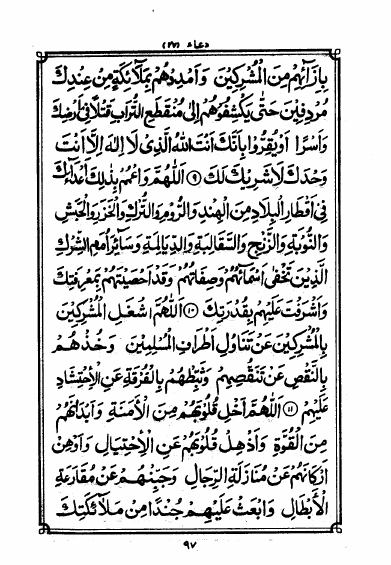 دعاء (٢٧)
بِإِزَآئِهِمْ مِنَ الْمُشْرِكِيْنَ وَأَمْدِدْهُمْ بِمَلَآئِكَةٍ مِنْ عِنْدِكَ
مُرْدِفِيْنَ حَتّٰى يَكْشِفُوْهُمْ إِلٰى مُنْقَطَعِ التُّرَابِ قَتْلًا فِيْ أَرْضِكَ
وَأَسْرًا أَوْيُقِرُّوْا بِأَنَّكَ أَنْتَ اللهُ الَّذِيْ لَا إِلٰهَ إِلَّا أَنْتَ
وَحْدَكَ لَا شَرِيْكَ لَكَ ⑨ اَللّٰهُمَّ وَاعْمُمْ بِذٰلِكَ أَعْدَآئَكَ
فِيْ أَقْطَارِ الْبِلَادِ مِنَ الْهِنْدِ وَالرُّوْمِ وَالتُّرْكِ وَالْخَزَرِ وَالْحَبَشِ
وَالنُّوْبَةِ وَالزَّنْجِ وَالسَّقَالِبَةِ وَالدَّيَالِمَةِ وَسَآئِرِ أُمَمِ الشِّرْكِ
الَّذِيْنَ تَخْفٰى أَسْمَآئُهُمْ وَصِفَاتُهُمْ وَقَدْ أَحْصَيْتَهُمْ بِمَعْرِفَتِكَ
وَأَشْرَفْتَ عَلَيْهِمْ بِقُدْرَتِكَ ⑩ اَللّٰهُمَّ اشْغَلِ الْمُشْرِكِيْنَ
بِالْمُشْرِكِيْنَ عَنْ تَنَاوُلِ أَطْرَافِ الْمُسْلِمِيْنَ وَخُذْهُمْ
بِالنَّقْصِ عَنْ تَنَقُّصِهِمْ وَثَبِّطْهُمْ بِالْفُرْقَةِ عَنِ الْاِحْتِشَادِ
عَلَيْهِمْ ⑪ اَللّٰهُمَّ أَخْلِ قُلُوْبَهُمْ مِنَ الْأَمَنَةِ وَأَبْدَانَهُمْ
مِنَ الْقُوَّةِ وَأَذْهِلْ قُلُوْبَهُمْ عَنِ الْاِحْتِيَالِ وَأَوْهِنْ
أَرْكَانَهُمْ عَنْ مُنَازَلَةِ الرِّجَالِ وَجَبِّنْهُمْ عَنْ مُقَارَعَةِ
الْأَبْطَالِ وَابْعَثْ عَلَيْهِمْ جُنْدًا مِنْ مَلَآئِكَتِكَ
٩٧